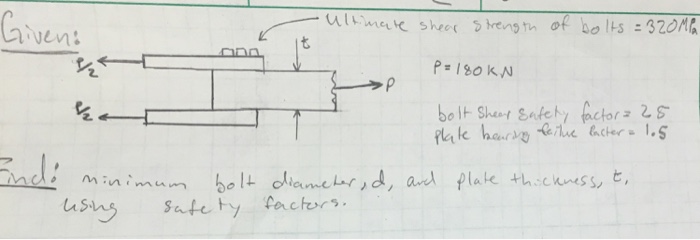 Given:
Ultimate shear strength of bolts = 320MPa
t
P/2
P
P = 180 KN
P/2
bolt shear safety factor = 2.5
plate bearing failure factor = 1.5
Find: minimum bolt diameter, d, and plate thickness, t,
using safety factors.